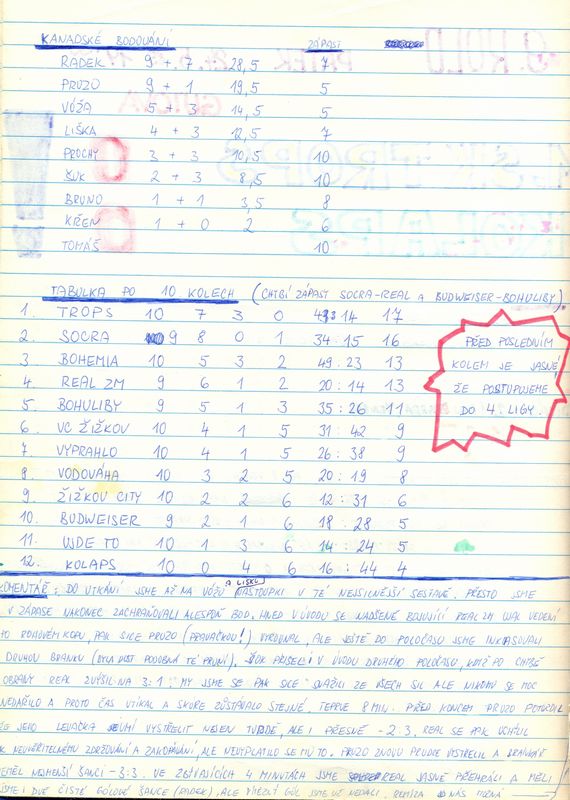 KANADSKÉ BODOVÁNÍ ZÁPAST
RADEK 9 + 7 28,5 7
PRUZO 9 + 1 19,5 5
VÓŽA 5 + 3 14,5 5
LIŠKA 4 + 3 12,5 7
PROCHY 3 + 3 10,5 10
ŽUK 2 + 3 8,5 10
BRUNO 1 + 1 3,5 8
KŘEN 1 + 0 2 6
TOMÁŠ 10
TABULKA PO 10 KOLECH (CHYBÍ ZÁPAST SOCRA-REAL A BUDWEISER-BOHULIBY).
1. TROPS 10 7 3 0 14 17
2. SOCRA 9 8 0 1 34:15 16
3. BOHEMIA 10 5 3 2 49:23 13
4. REAL ZM 9 6 1 2 20:14 13
5. BOHULIBY 9 5 1 3 35:26 11
6. VC ŽIŽKOV 10 4 1 5 31:42 9
7. VYPRAHLO 10 4 1 5 26:38 9
8. VODOVÁHA 10 3 2 5 20:19 8
9. ŽIŽKOV CITY 10 2 2 6 12:31 6
10. BUDWEISER 9 2 1 6 18:28 5
11. UJDE TO 10 1 3 6 14:24 5
12. KOLAPS 10 0 4 6 16:44 4
PŘED POSLEDNÍM
KOLEM JE JASNÉ,
ŽE POSTUPUJEME
DO 4. LIGY.
KOMENTÁŘ: DO UTKÁNÍ JSME AŽ NA VÓŽU A LIŠKU NASTOUPILI V TÉ NEJSILNĚJŠÍ SESTAVĚ. PŘESTO JSME
V ZÁPASE NAKONEC ZACHRAŇOVALI ALESPOŇ BOD. HNED V ÚVODU SE NADŠENĚ BOJUJÍCÍ REAL ZM UJAL VEDENÍ
PO ROHOVÉM KOPU, PAK SICE PRUZO (PRAVAČKOU!) VYROVNAL, ALE JEŠTĚ DO POLOČASU JSME INKASOVALI
DRUHOU BRANKU (BYLA DOST PODOBNÁ TÉ PRVNÍ). ŠOK PŘIŠEL I V ÚVODU DRUHÉHO POLOČASU, KDYŽ PO CHYBĚ
OBRANY REAL ZVÝŠIL NA 3:1. MY JSME SE PAK SICE SNAŽILI ZE VŠECH SIL ALE NIKOMU SE MOC
NEDAŘILO A PROTO ČAS UTÍKAL A SKÓRE ZŮSTÁVALO STEJNÉ. TEPRVE 8 MIN. PŘED KONCEM PRUZO POTVRDIL
ŽE JEHO LEVAČKA UMÍ VYSTŘELIT NEJEN TVRDĚ, ALE I PŘESNĚ - 2:3. REAL SE PAK UCHÝLIL
K NEUVĚŘITELNÉMU ZDRŽOVÁNÍ A ZAKOPÁVÁNÍ, ALE NEVYPLATILO SE MU TO. PRUZO ZNOVU PRUDCE VYSTŘELIL A BRANKÁŘ
NEMĚL NEJMENŠÍ ŠANCI - 3:3. VE ZBÝVAJÍCÍCH 4 MINUTÁCH JSME REAL JASNĚ PŘEHRÁLI A MĚLI
JSME I DVĚ ČISTÉ GÓLOVÉ ŠANCE (RADEK), ALE VÍTĚZNÝ GÓL JSME UŽ NEDALI. REMÍZA NÁS MOŽNÁ